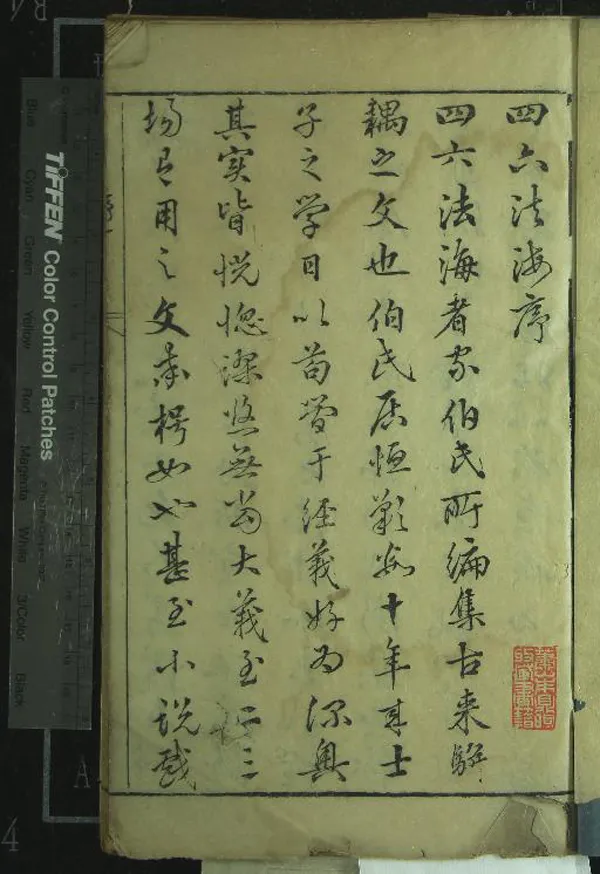 四六法海序
四六法海者家伯氏所編集古来駢
耦之文也伯氏居恒歎數十年来士
子之学日以苟營于经義好为深奥
其实皆恍惚深悠無當大義至二三
場有用之文
如也甚至小说戲
序一
TIFFEN Color Control Patches
Blue Cyan Green Yellow Red Magenta White 3/Color Black